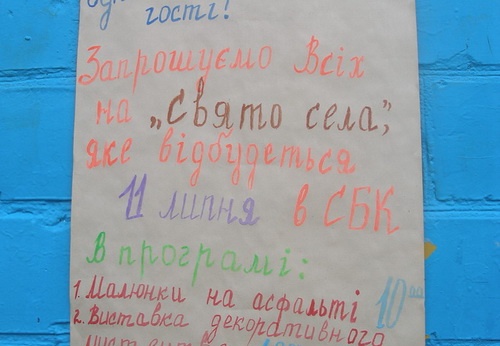 гості!
Запрошуємо Всіх
на „Свято села",
яке відбудеться
11 липня в СБК
В програмі:
1. Малюнки на асфальті 10⁰⁰
2. Виставка декоративного